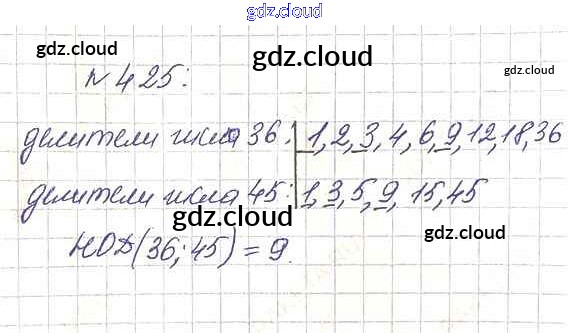 gdz.cloud
gdz.cloud gdz.cloud gdz.cloud
№ 425:
делители числа 36: 1, 2, 3, 4, 6, 9, 12, 18, 36
делители числа 45: 1, 3, 5, 9, 15, 45
gdz.cloud gdz.cloud
НОД(36; 45) = 9.